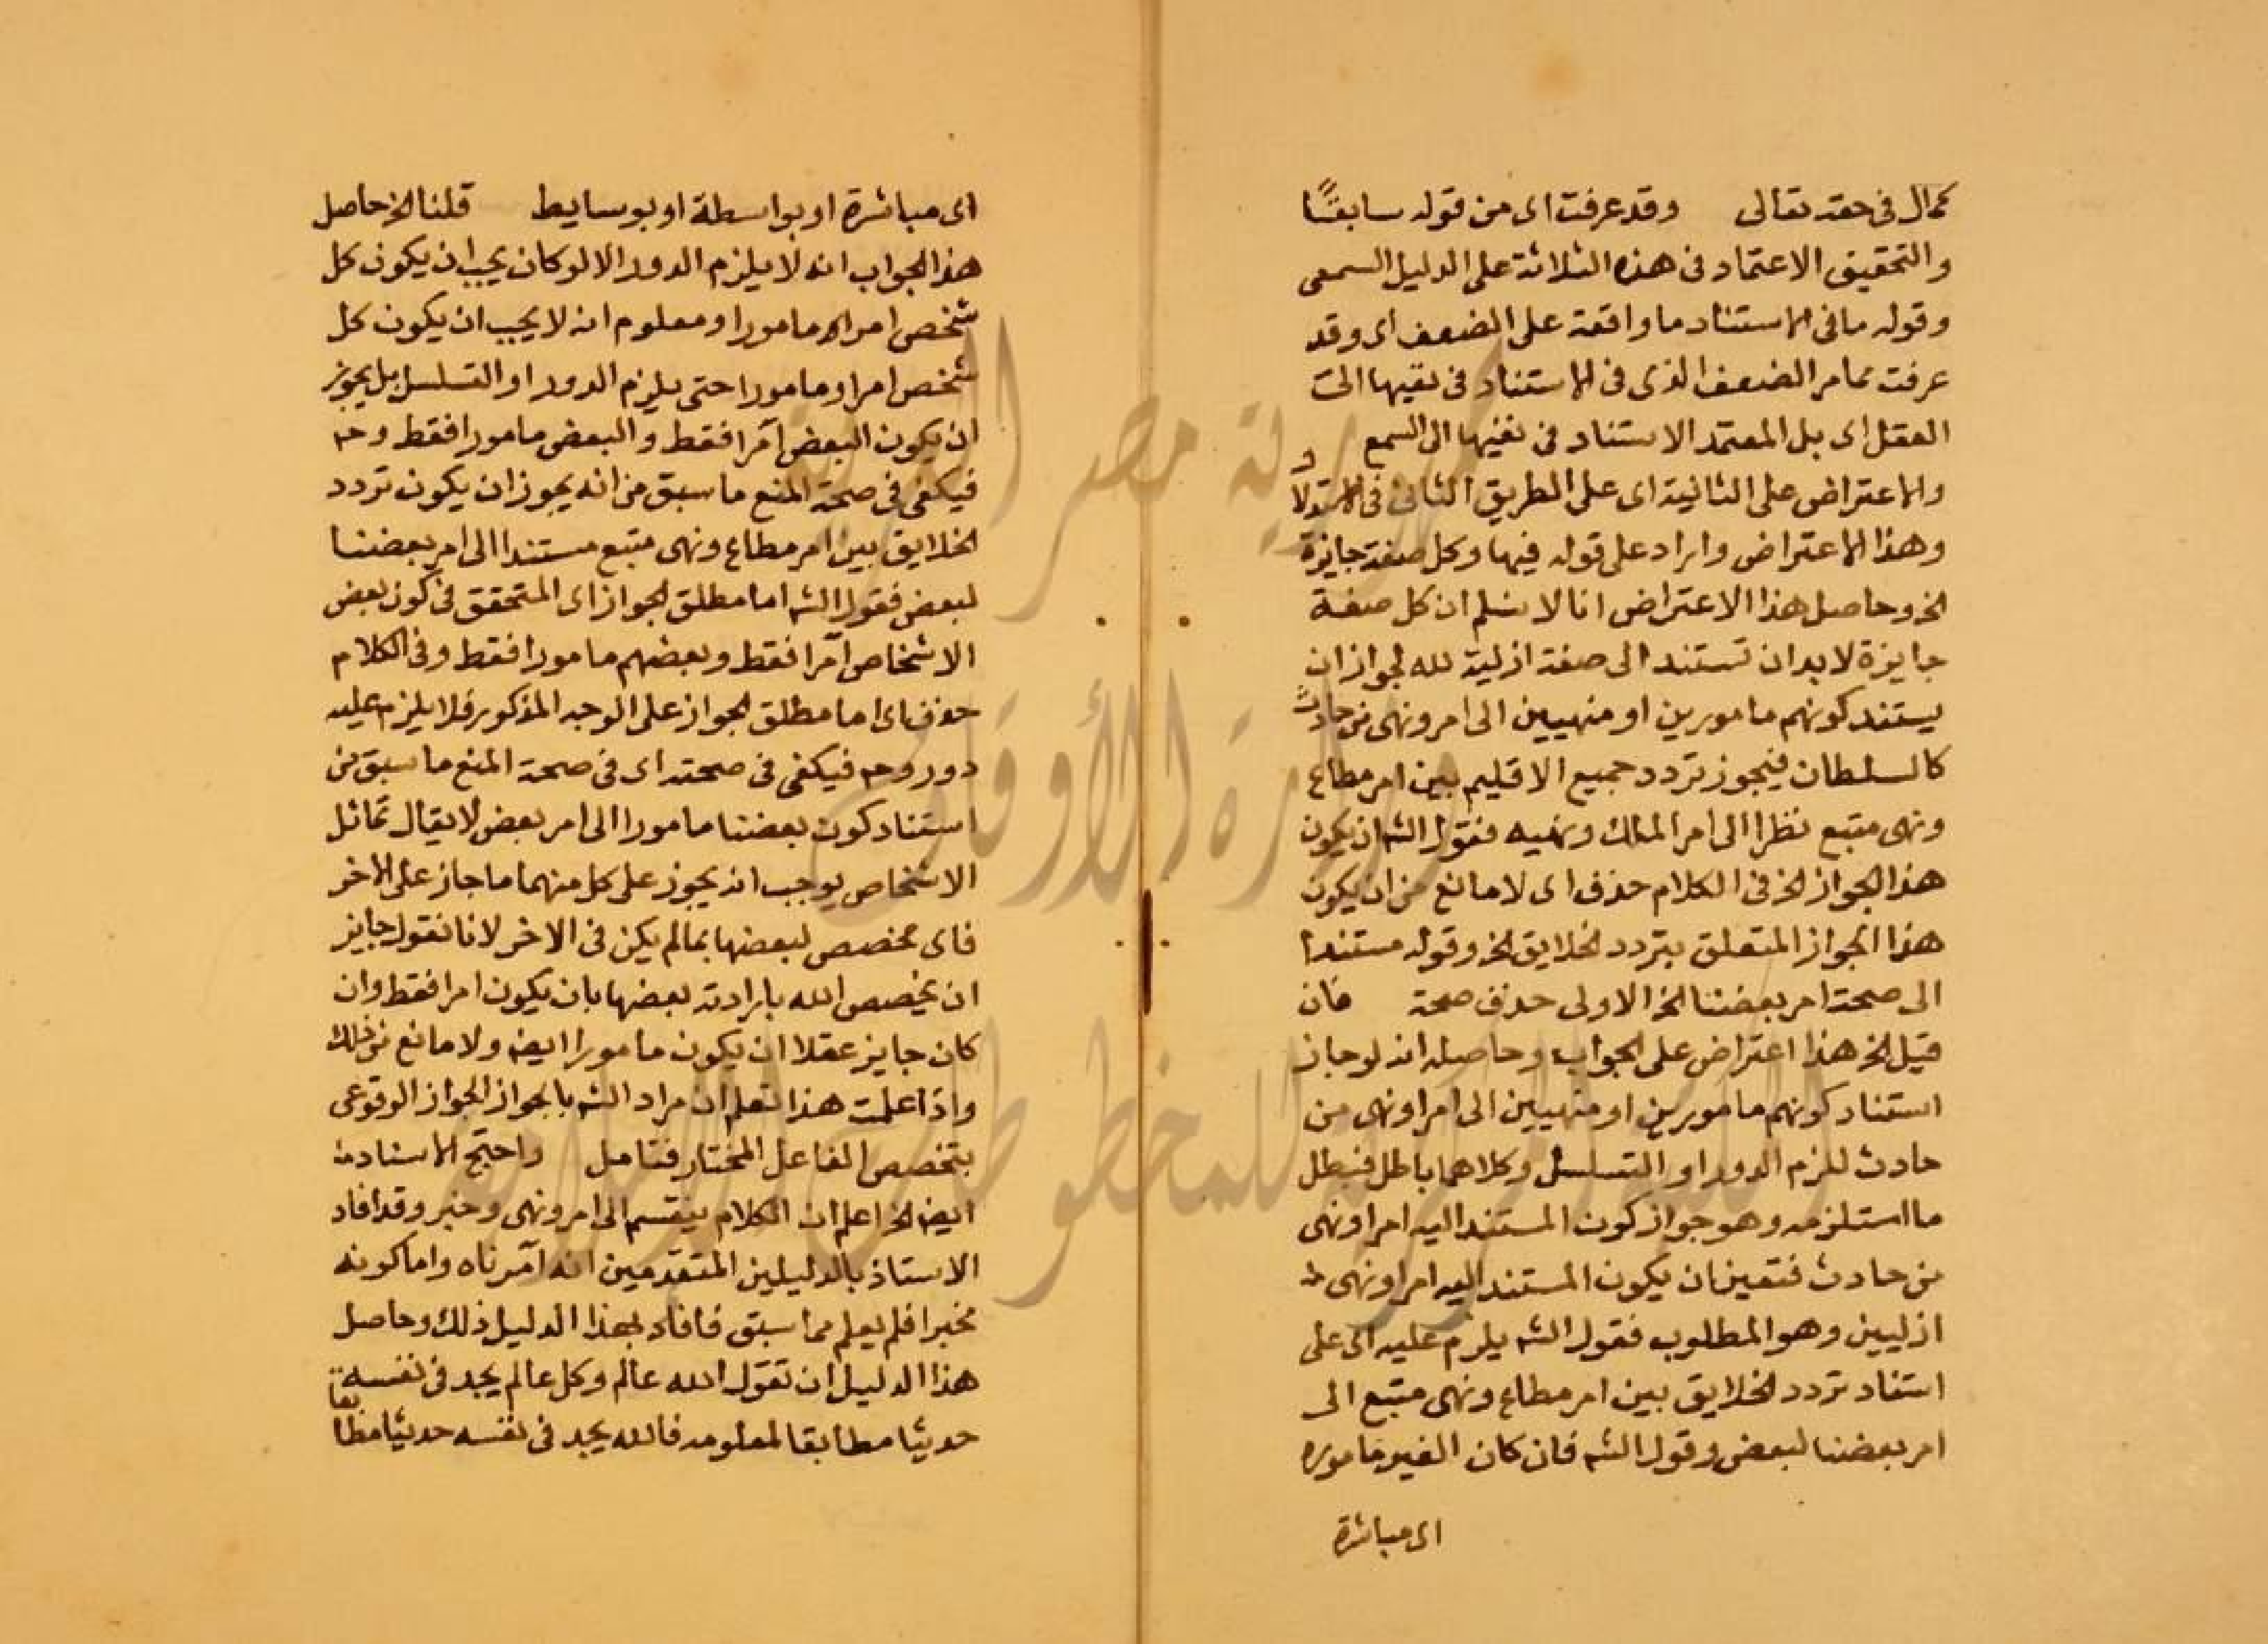 كمال فى حقه تعالى وقد عرفت اى من قوله سابقًا
والتحقيق الاعتماد فى هذه الثلاثة على الدليل السمعى
وقوله ما فى الاستناد ما واقعة على الضعف اى وقد
عرفت مما مر الضعف الذى فى الاستناد فى نفيها الى
العقل اى بل المعتمد الاستناد فى نفيها الى السمع
والاعتراض على الثانية اى على الطريق الثانى فى الاستدلال
وهذا الاعتراض وايراد على قوله فيها وكل صفة جايزة
الخ وحاصل هذا الاعتراض انا لا نسلم ان كل صفة
جايزة لابد ان تستند الى صفة ازلية لله لجواز ان
يستند كونهم مامورين او منهيين الى امر ونهى من حادث
كالسلطان فيجوز تردد جميع الاقليم بين امر مطاع
ونهى متبع نظرا الى امر الملك ونهيه فقول الشه ان يكون
هذا الجواز الخ فى الكلام حذف اى لا مانع من ان يكون
هذا الجواز المتعلق بتردد الخلايق الخ وقوله مستندا
الى صحة امر بعضنا الخ الاولى حذف صحة فان
قيل الخ هذا اعتراض على الجواب وحاصله انه لو جاز
استناد كونهم مامورين او منهيين الى امر او نهى من
حادث للزم الدور او التسلسل وكلاهما باطل فبطل
ما استلزمه وهو جواز كون المستند اليه امرا ونهى
من حادث فتعين ان يكون المستند اليه امر او نهى
ازليين وهو المطلوب فقول الشه يلزم عليه اى على
استناد تردد الخلايق بين امر مطاع ونهى متبع الى
امر بعضنا لبعض وقول الشه فان كان الغير مامورا
اى مباشرة
اى مباشرة او بواسطة او بوسايط قلنا الخ حاصل
هذا الجواب انه لا يلزم الدور الا لو كان يجب ان يكون كل
شخص امرا مامورا ومعلوم انه لا يجب ان يكون كل
شخص امرا ومامورا حتى يلزم الدور او التسلسل بل يجوز
ان يكون البعض آمرا فقط والبعض مامورا فقط وحـ
فيكفى فى صحة المنع ما سبق من انه يجوز ان يكون تردد
الخلايق بين امر مطاع ونهى متبع مستندا الى امر بعضنا
لبعض فقول الشه اما مطلق الجواز اى المتحقق فى كون بعض
الاشخاص آمرا فقط وبعضهم مامورا فقط وفى الكلام
حذف اى اما مطلق الجواز على الوجه المذكور فلا يلزم عليه
دور وحـ فيكفى فى صحته اى فى صحة المنع ما سبق من
استناد كون بعضنا مامورا الى امر بعض لا يقال تماثل
الاشخاص يوجب انه يجوز على كل منهما ما جاز على الاخر
فاى مخصص لبعضها بما لم يكن فى الاخر لانا نقول جايز
ان يخصص الله بارادته بعضها بان يكون امرا فقط وان
كان جايز عقلا ان يكون مامورا ايضه ولا مانع من ذلك
واذا علمت هذا تعلم ان مراد الشه بالجواز الجواز الوقوعى
بتخصص الفاعل المختار فتامل واحتج الاستاد
ايضه الخ اعلم ان الكلام ينقسم الى امر ونهى وخبر وقد افاد
الاستاذ بالدليلين المتقدمين انه آمر ناه واما كونه
مخبرا فلم يعلم مما سبق فافاد بهذا الدليل ذلك وحاصل
هذا الدليل ان تقول الله عالم وكل عالم يجد فى نفسه
حديثا مطابقا لمعلومه فالله يجد فى نفسه حديثا مطابقا